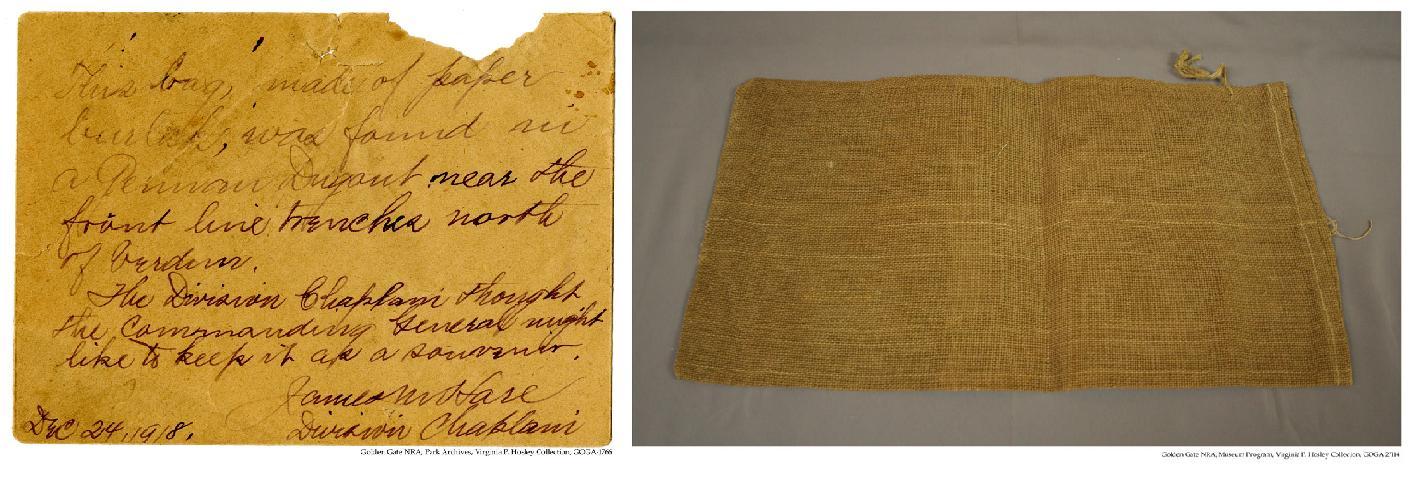 This bag, made of paper
burlap, was found in
a German Dugout near the
front line trenches north
of Verdun.
The Division Chaplain thought
the Commanding General might
like to keep it as a souvenir.
James M Hare
Division Chaplain
Dec 24, 1918.
Golden Gate NRA, Park Archives, Virginia P. Hosley Collection, GOGA-1766
Golden Gate NRA, Museum Program, Virginia P. Hosley Collection, GOGA